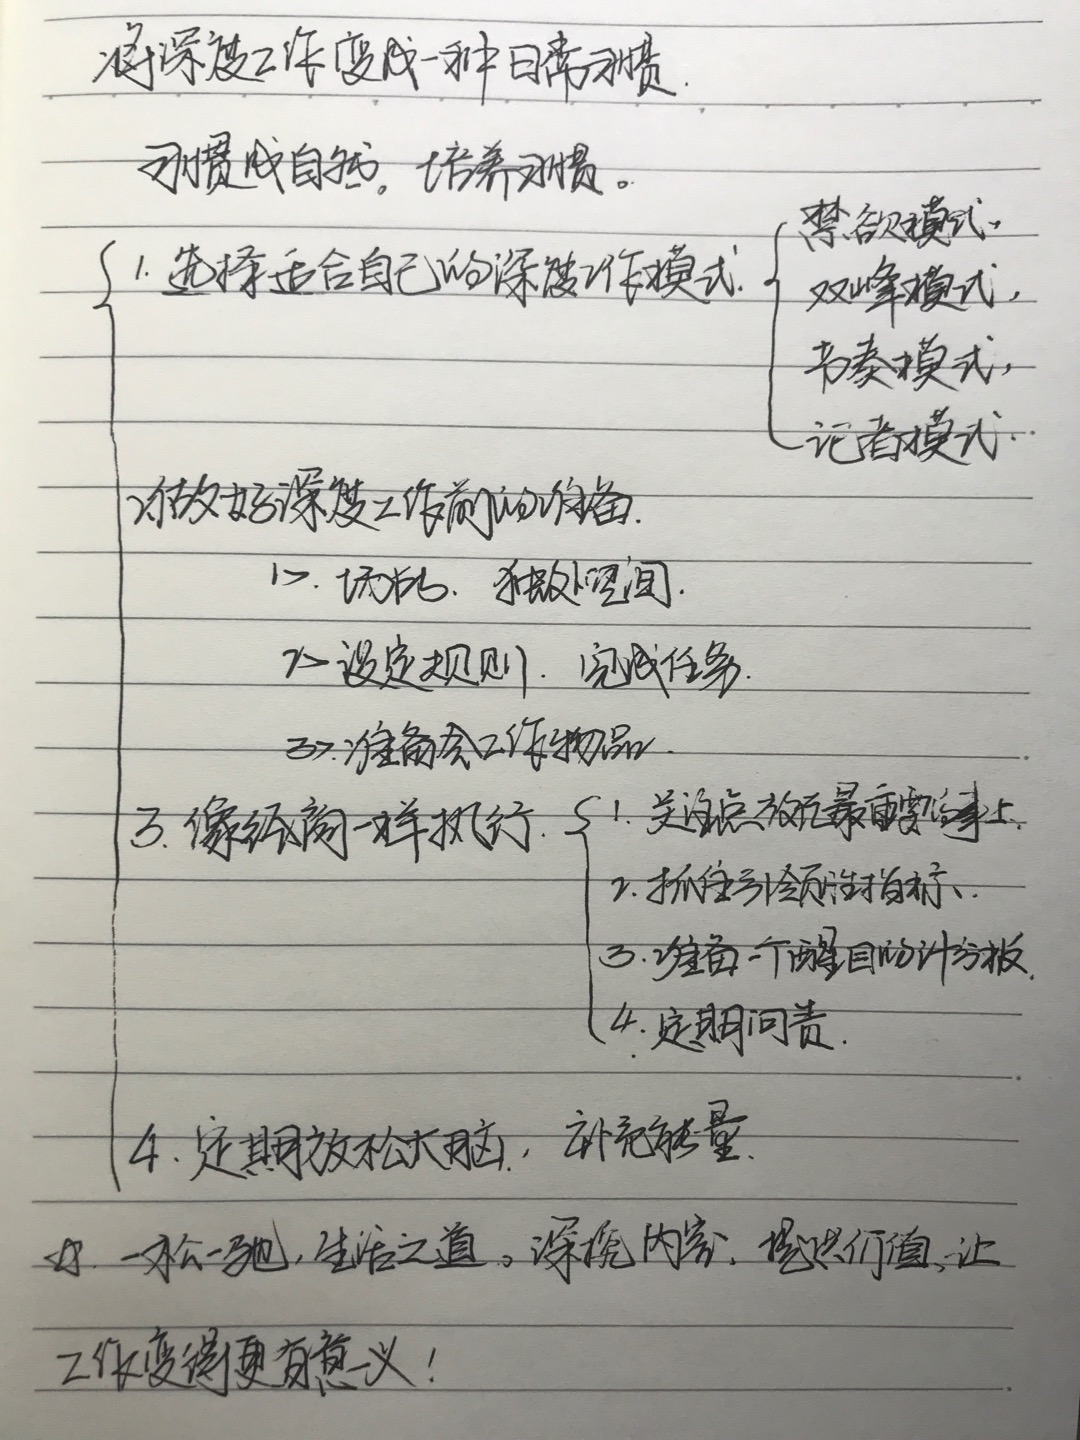 将深度工作变成一种日常习惯.
习惯成自然。培养习惯。
1. 选择适合自己的深度工作模式.
禁欲模式、
双峰模式,
节奏模式,
记者模式.
2. 做好深度工作前的准备.
1>. 场所、独处空间.
2> 设定规则、完成任务.
3>. 准备含工作物品.
3. 像纸阁一样执行.
1. 关注点放在最重要的事上.
2. 抓住引领性指标、
3. 准备一个醒目的计分板.
4. 定期问责.
4. 定期放松大脑, 补充能量.
☆. 一松一驰, 生活之道。深挖内容, 提供价值、让
工作变得更有意义!